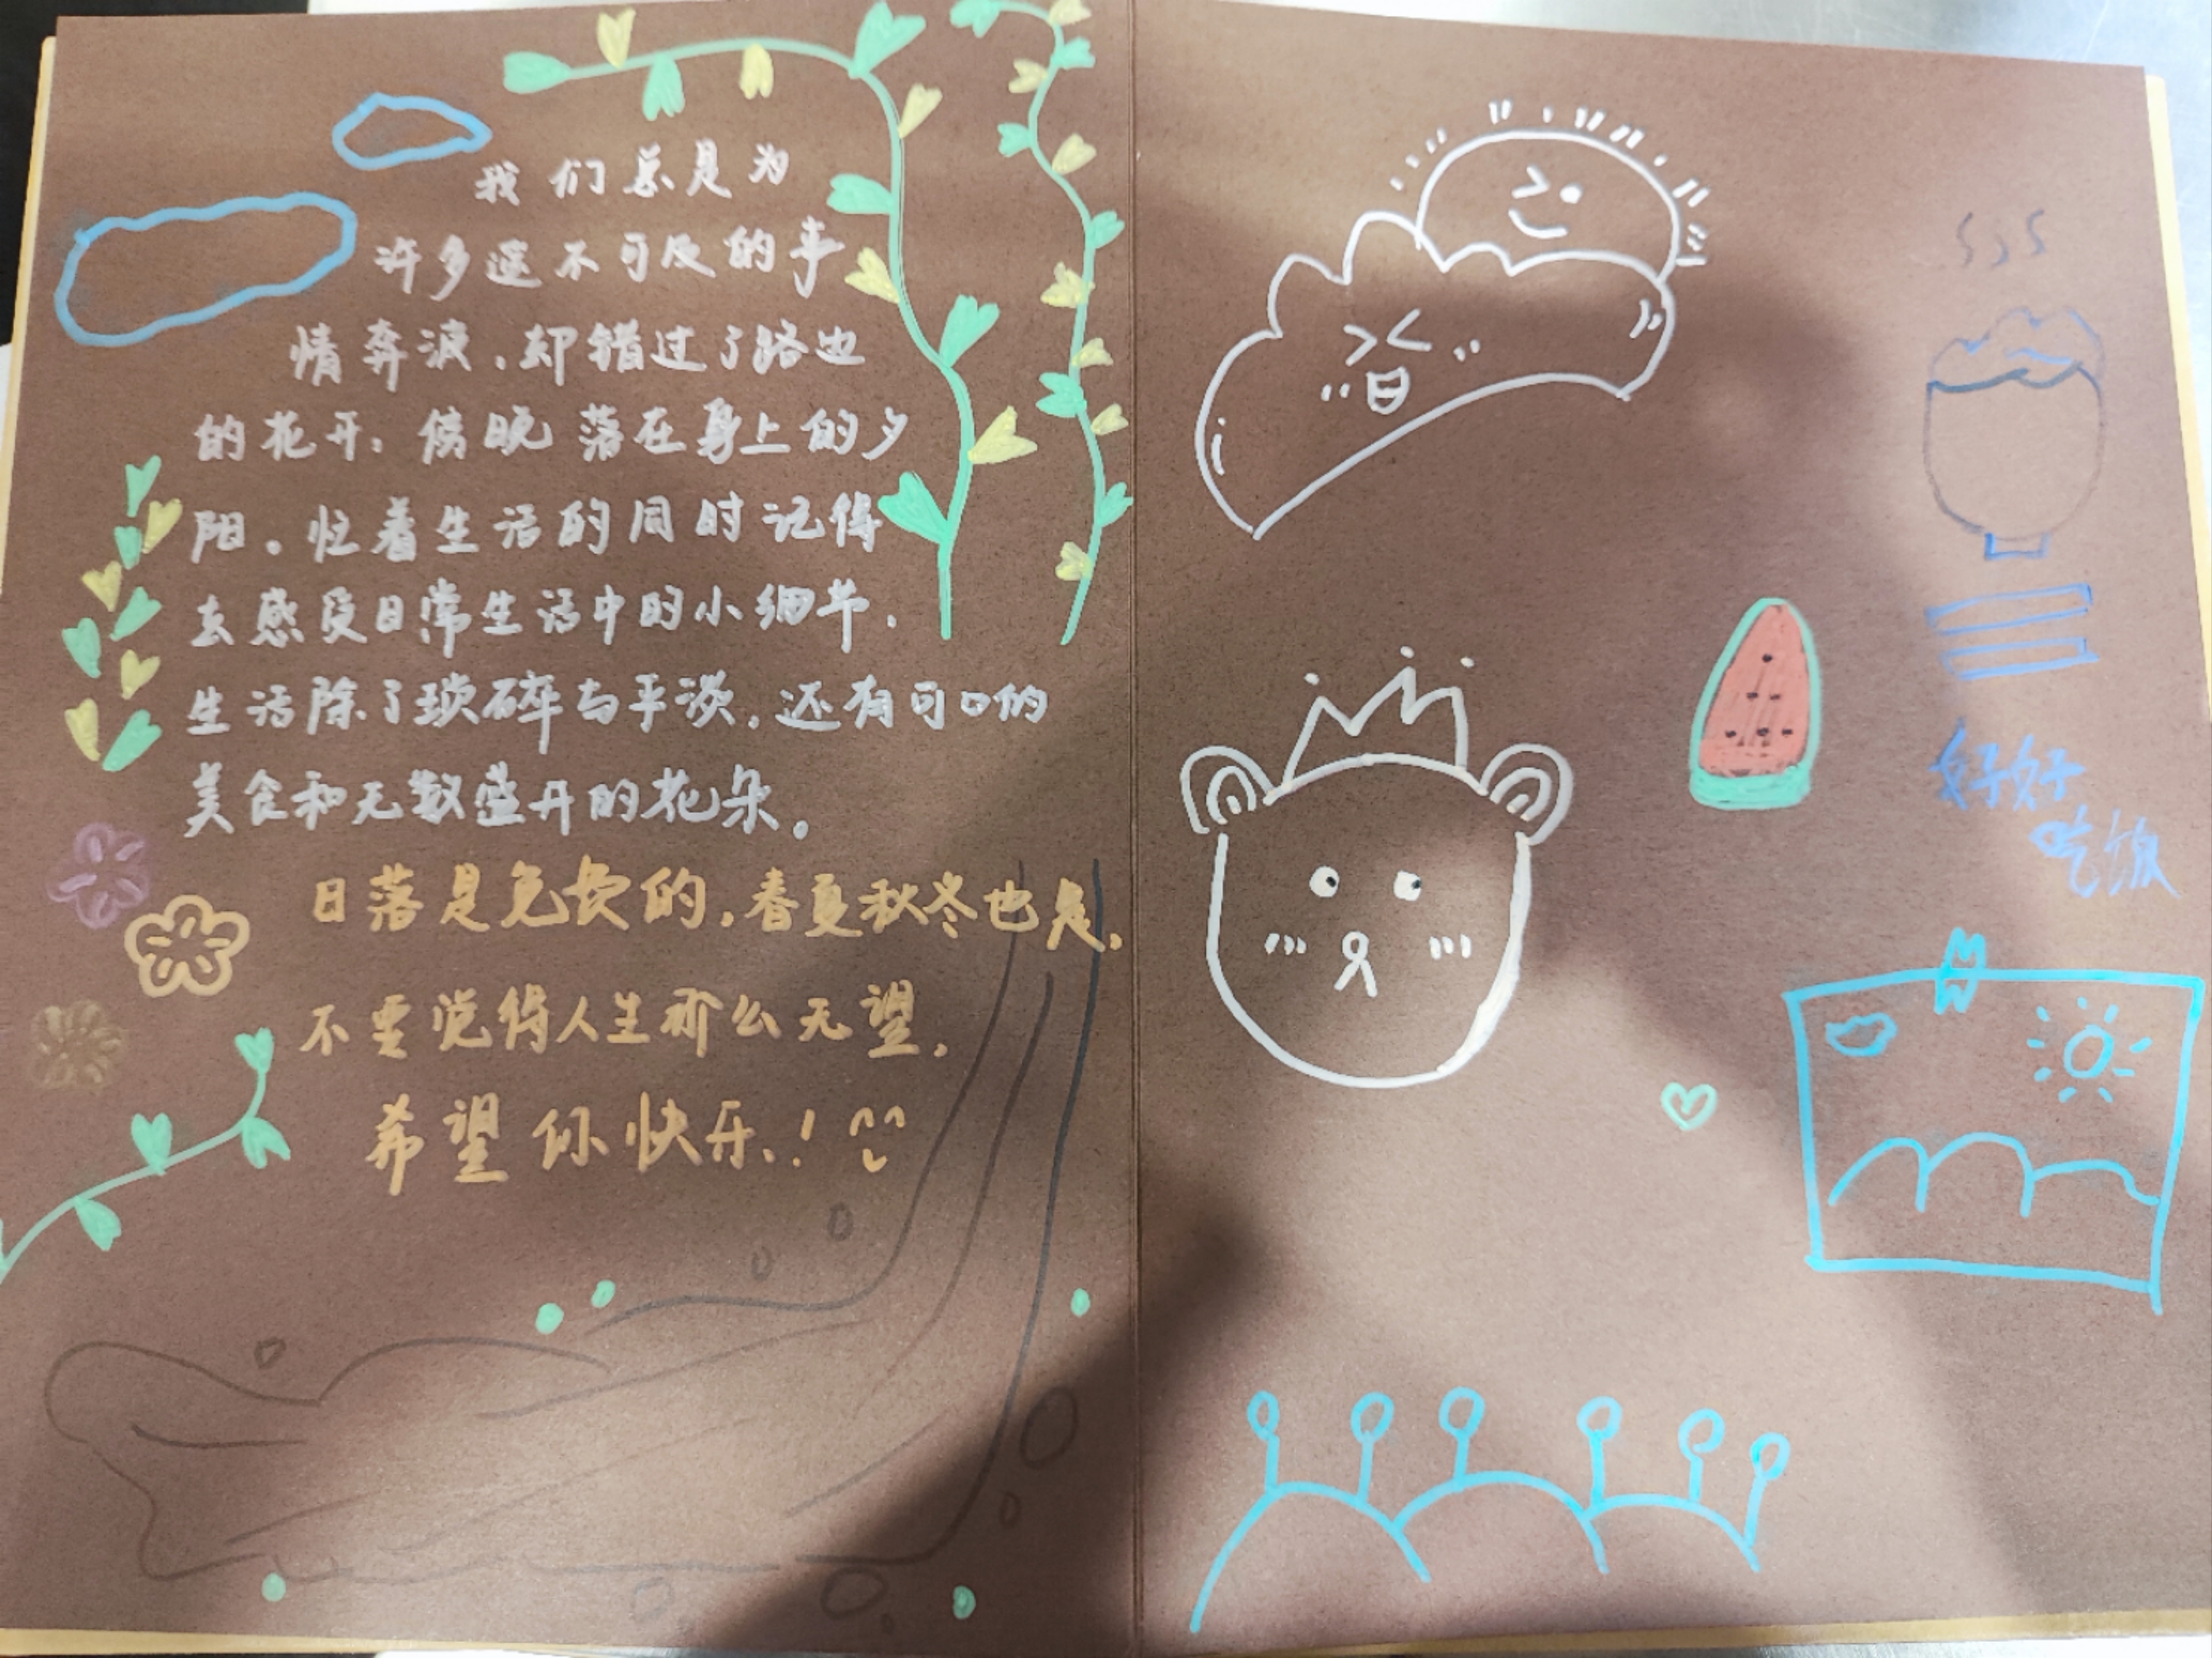 我们总是为
许多遥不可及的事
情奔波,却错过了路边
的花开,傍晚落在身上的夕
阳。忙着生活的同时记得
去感受日常生活中的小细节,
生活除了琐碎与平淡,还有可口的
美食和无数盛开的花朵。
日落是免费的,春夏秋冬也是,
不要觉得人生那么无望,
希望你快乐!
好好
吃饭